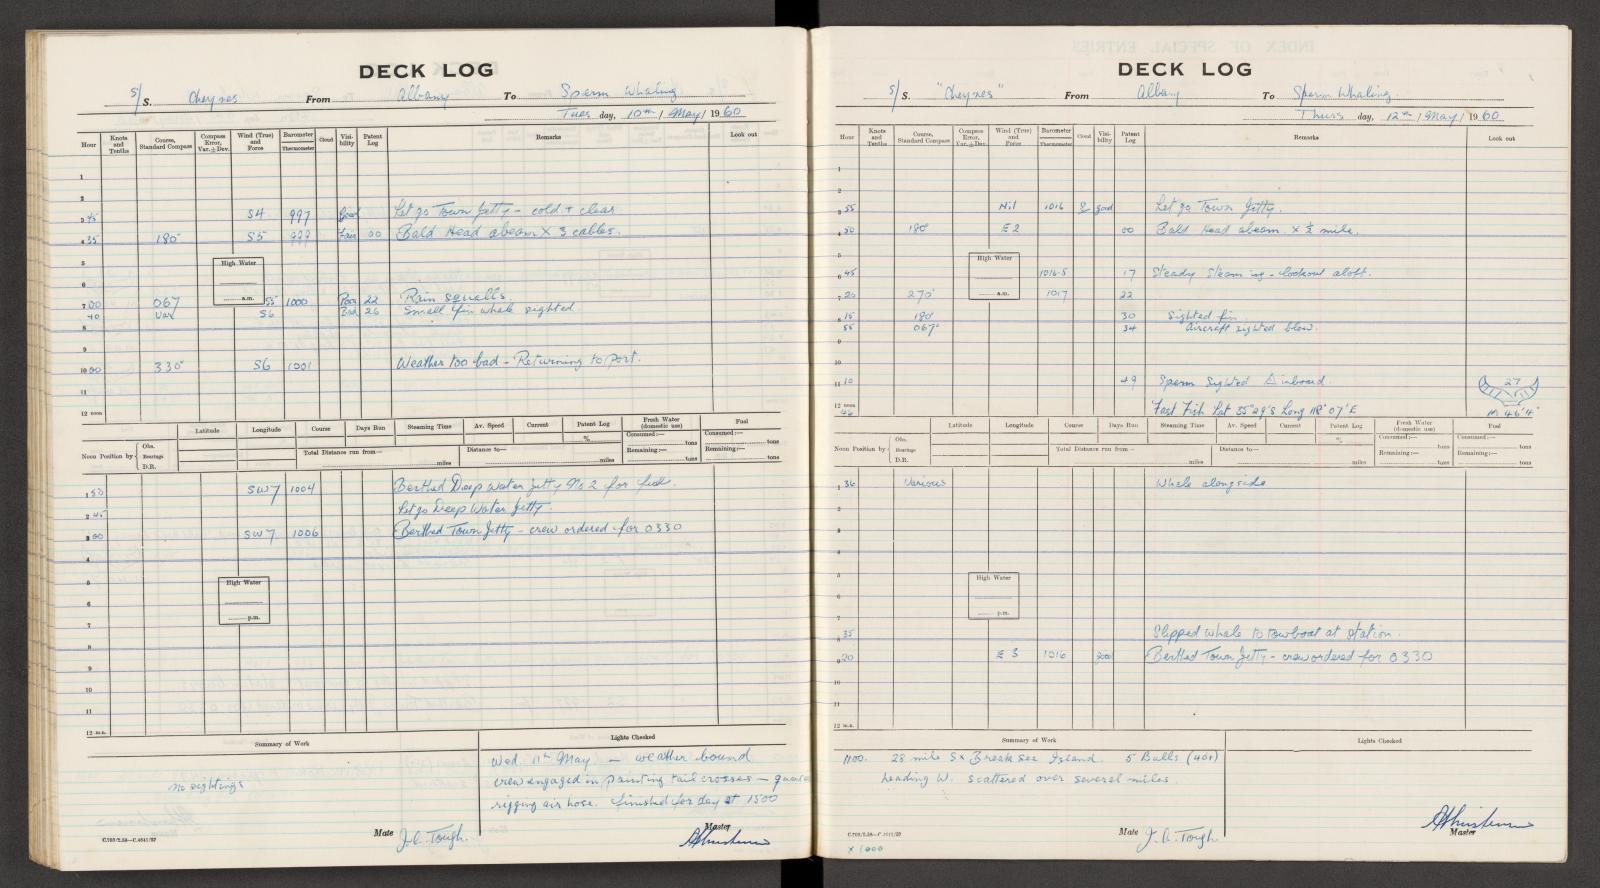 DECK LOG
S/S. Cheynes From Albany To Sperm Whaling
Tues day, 10th / May / 1960
Hour Knots and Tenths Course, Standard Compass Compass Error, Var. ± Dev. Wind (True) and Force Barometer Thermometer Cloud Visibility Patent Log Remarks Look out
1
2
3 45 S4 997 Good Let go Town Jetty - cold + clear
4 35 180° S5 999 Fair 00 Bald Head abeam x 3 cables.
5
High Water
6
a.m.
7 00 067 S5 1000 Poor 22 Rain squalls.
40 Var S6 Bad 26 Small fin whale sighted.
8
9
10 00 330° S6 1001 Weather too bad - Returning to port.
11
12 noon
Noon Position by Obs. Bearings D.R. Latitude Longitude Course Days Run Steaming Time Av. Speed Current Patent Log % Fresh Water (domestic use) Fuel
Consumed:— tons Consumed:— tons
Total Distance run from— miles Distance to— miles Remaining:— tons Remaining:— tons
1 50 SW7 1004 Berthed Deep Water Jetty No 2 for fuel.
2 45 Let go Deep Water Jetty.
3 00 SW7 1006 Berthed Town Jetty - crew ordered for 0330
4
5
High Water
6
p.m.
7
8
9
10
11
12 m.n.
Summary of Work Lights Checked
no sightings
Wed 11th May - weather bound
crew engaged in painting tail crosses -
rigging air hose. finished for day at 1500
C.702/2.58—C.4641/57 Mate J.C. Tough. Master
DECK LOG
S/S. "Cheynes" From Albany To Sperm Whaling.
Thurs day, 12th / May / 1960
Hour Knots and Tenths Course, Standard Compass Compass Error, Var. ± Dev. Wind (True) and Force Barometer Thermometer Cloud Visibility Patent Log Remarks Look out
1
2
3 55 Nil 1016 good Let go Town Jetty.
4 50 180° E2 00 Bald Head abeam. x ½ mile.
5
High Water
6 45 1016.5 17 Steady Steaming - lookout aloft.
a.m.
7 20 270° 1017 22
8 15 180° 30 Sighted fin.
55 067° 34 Aircraft sighted blow.
9
10
11 10 49 Sperm Sighted inboard. 27
12 noon
46 Fast Fish Lat 35° 29' S Long 118° 07' E M 46'4"
Noon Position by Obs. Bearings D.R. Latitude Longitude Course Days Run Steaming Time Av. Speed Current Patent Log % Fresh Water (domestic use) Fuel
Consumed:— tons Consumed:— tons
Total Distance run from— miles Distance to— miles Remaining:— tons Remaining:— tons
1 36 Various Whale alongside
2
3
4
5
High Water
6
p.m.
7
35 Slipped whale to towboat at station.
8
9 20 E 3 1016 good Berthed Town Jetty - crew ordered for 0330
10
11
12 m.n.
Summary of Work Lights Checked
1100. 28 mile S x Breaksea Island. 5 Bulls (40+)
heading W. scattered over several miles.
C.702/2.58—C.4641/57 Mate J. C. Tough Master
x 1000